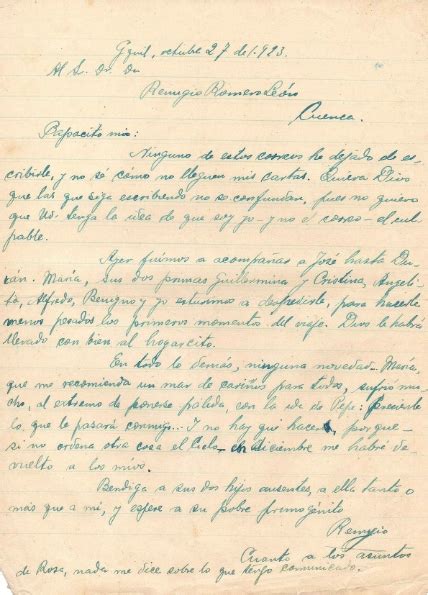 Gquil, octubre 27 de 1.923.
Al Sr. Dr. Dn
Remigio Romero León
Cuenca.
Papacito mío:
Ninguno de estos correos he dejado de es-
cribirle, y no sé como no lleguen mis cartas. Quiera Dios
que las que siga escribiendo no se confundan, pues no quiero
que Ud. tenga la idea de que soy yo - y no el correo - el cul
pable.
Ayer fuimos a acompañar a José hasta Du-
rán. María, sus dos primas Guillermina y Cristina, Angeli-
ta, Alfredo, Benigno y yo estuvimos a despedirle, para hacerle
menos pesados los primeros momentos del viaje. Dios le habrá
llevado con bien al hogarcito.
En todo lo demás, ninguna novedad. María,
que me recomienda un mar de cariños para todos, sufrió mu-
cho, al extremo de ponerse pálida, con la ida de Pepe:
lo, que le pasará conmigo... I no hay que hacer, porque
si no ordena otra cosa el Cielo, en diciembre me habré de-
vuelto a los míos.
Bendiga a sus dos hijos ausentes, a ella tanto o
más que a mí, y espere a su pobre primogénito
Remigio
Cuanto a los asuntos
de Rosa, nada me dice sobre lo que tengo comunicado.